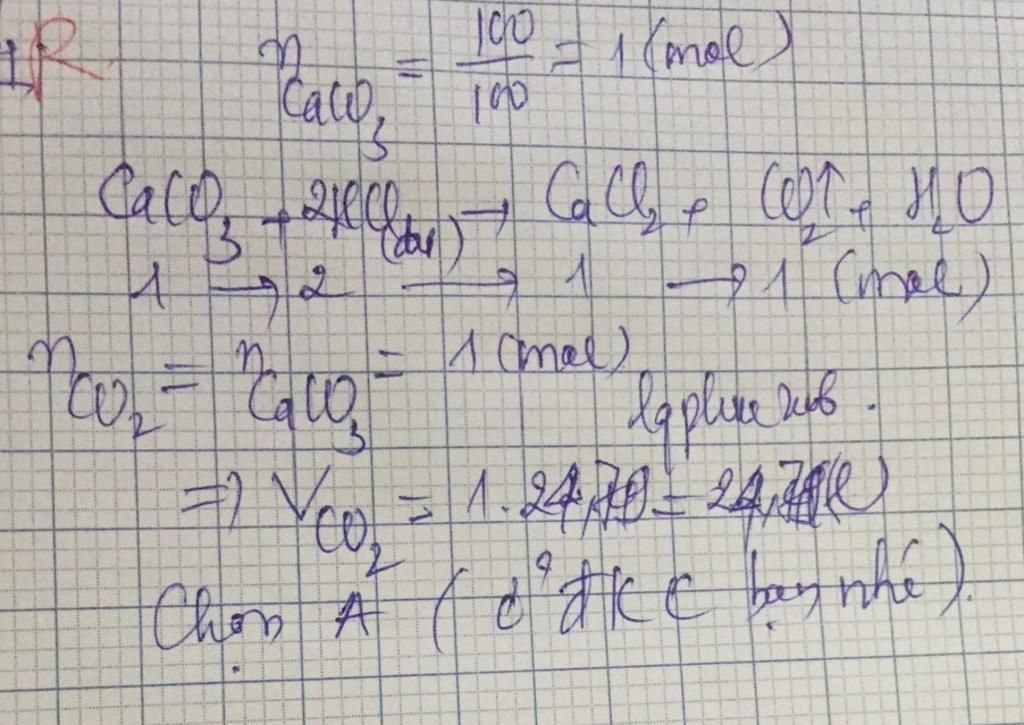 1R n CaCO3 = 100/100 = 1 (mol)
CaCO3 + 2HCl (dư) → CaCl2 + CO2↑ + H2O
1 → 2 → 1 → 1 (mol)
nCO2 = nCaCO3 = 1 (mol)
=> VCO2 = 1.24,79 = 24,79 (l)
Chọn A (ở đkc bạn nhé).